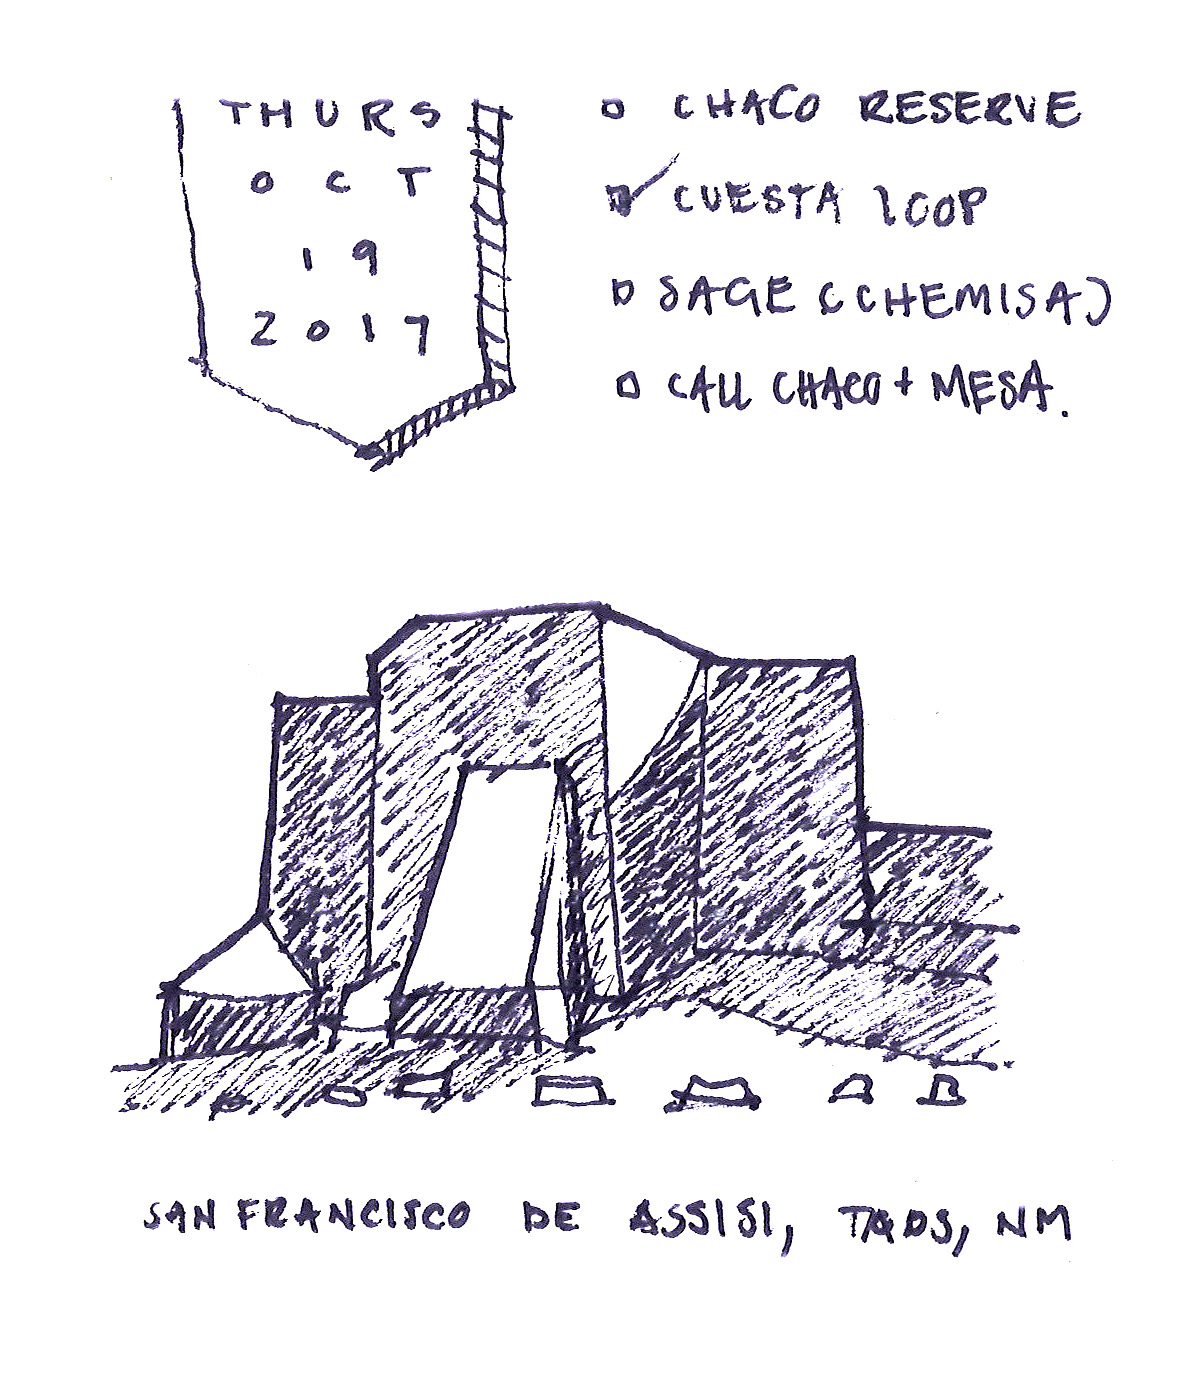 THURS
OCT
19
2017
CHACO RESERVE
CUESTA LOOP
SAGE (CHEMISA)
CALL CHACO + MESA.
SAN FRANCISCO DE ASSISI, TAOS, NM